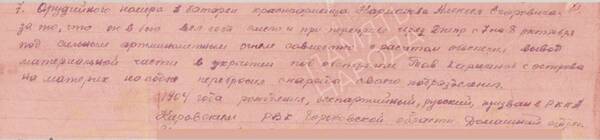 7. Орудийного номера 2 батареи красноармейца Каржавова Алексея Егоровича
за то, что он в бою вел себя смело и при переправе через Днепр с 7 на 8 октября
под сильным артминометным огнем совместно с расчетом обеспечил вывод
материальной части в укрытия под обстрелом. Тов с острова
на материк на себе перебросил снаряды своего подразделения.
1904 года рождения, беспартийный, русский, призван в РККА
Кировским РВК Горьковской области. Домашний адрес